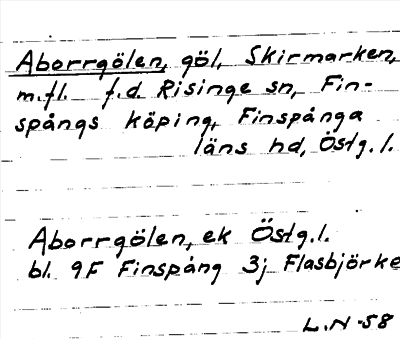 Aborrgölen, göl, Skirmarken,
m.fl. f.d. Risinge sn, Fin-
spångs köping, Finspånga
läns hd, Östg.l.
Aborrgölen, ek Östg.l.
bl. 9F Finspång 3j Flasbjörke
L.N-58